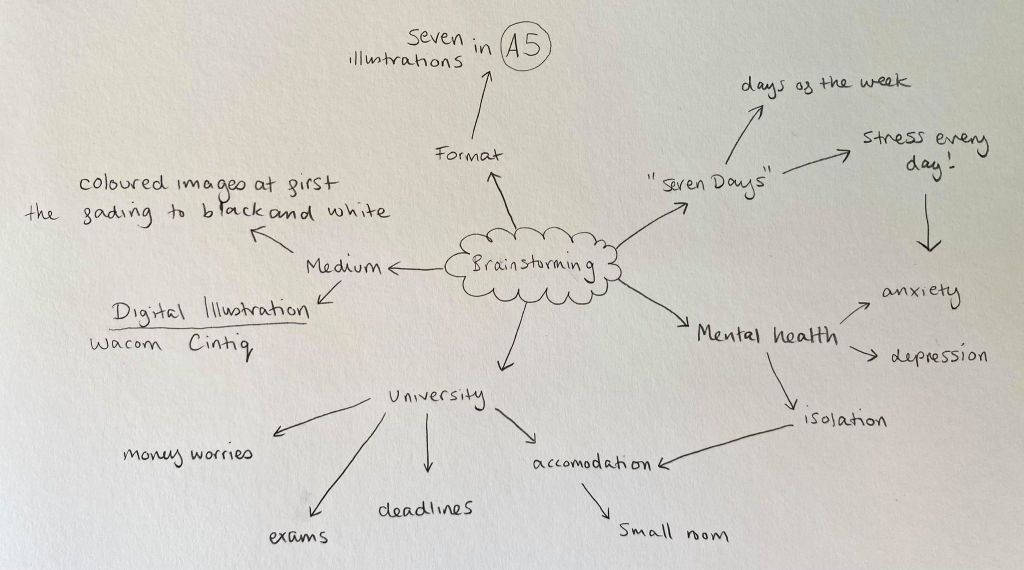 Seven in A5
illustrations
Format
days of the week
"Seven Days"
Stress every
day!
coloured images at first
the fading to black and white
Medium
Brainstorming
Digital Illustration
Wacom Cintiq
anxiety
Mental health
depression
University
isolation
money worries
accomodation
deadlines
exams
Small room